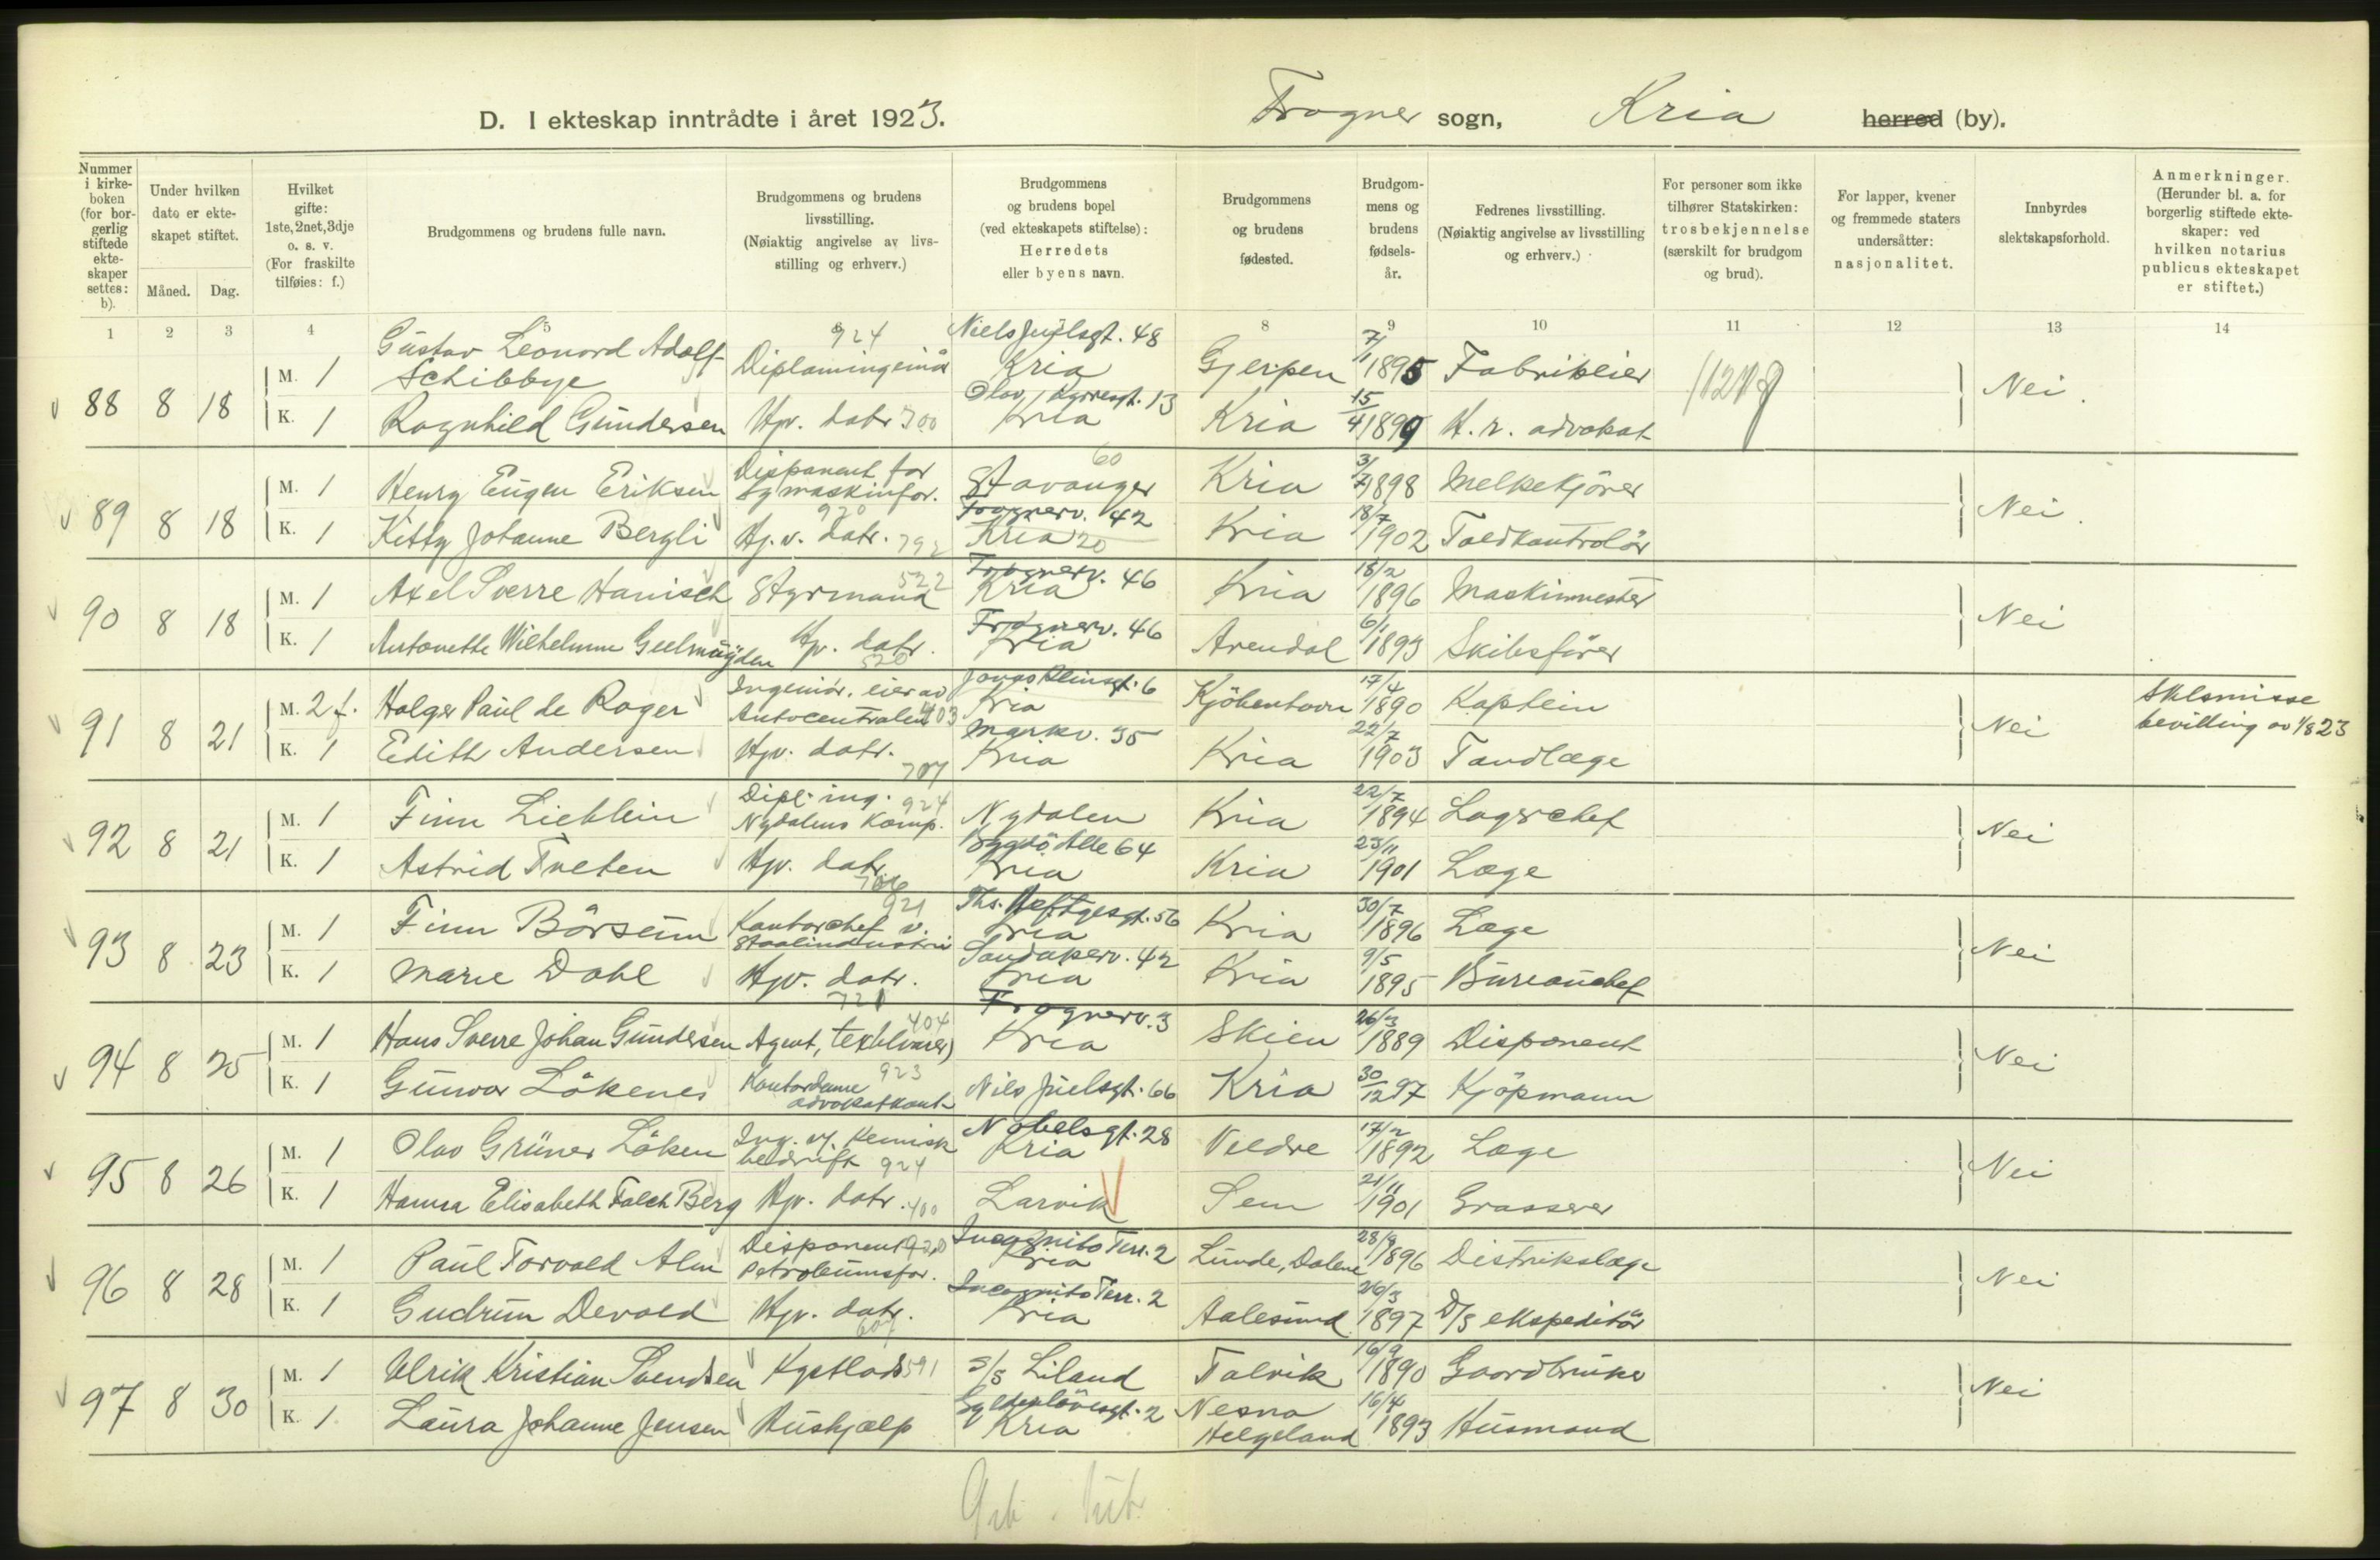 D. I ekteskap inntrådte i året 1923.
Frogner sogn, Kria herred (by).
Nummer i kirke-boken (for bor-gerlig stiftede ekte-skaper settes: b).
Under hvilken dato er ekte-skapet stiftet.
Måned. Dag.
Hvilket gifte: 1ste, 2net, 3dje o. s. v. (For fraskilte tilføies: f.)
Brudgommens og brudens fulle navn.
Brudgommens og brudens livsstilling. (Nøiaktig angivelse av livs-stilling og erhverv.)
Brudgommens og brudens bopel (ved ekteskapets stiftelse): Herredets eller byens navn.
Brudgommens og brudens fødested.
Brudgom-mens og brudens fødsels-år.
Fedrenes livsstilling. (Nøiaktig angivelse av livsstilling og erhverv.)
For personer som ikke tilhører Statskirken: trosbekjennelse (særskilt for brudgom og brud).
For lapper, kvener og fremmede staters undersåtter: nasjonalitet.
Innbyrdes slektskapsforhold.
Anmerkninger. (Herunder bl. a. for borgerlig stiftede ekte-skaper: ved hvilken notarius publicus ekteskapet er stiftet.)
1 2 3 4 5 8 9 10 11 12 13 14
88 8 18 M. 1 Gustav Leonard Adolf Schibbye Diplomingeniør 924 Niels Juelsgt. 48 Kria Gjerpen 7/1 1895 Fabrikeier Nei.
K. 1 Ragnhild Gundersen Hjv. datr 700 Olav Kyrresgt. 13 Kria Kria 15/4 1899 H. r. advokat
89 8 18 M. 1 Henry Eugen Eriksen Disponent for Symaskinfor. 920 Stavanger 60 Kria 3/7 1898 Melkekjører Nei.
K. 1 Kitty Johanne Bergli Hj. v. datr. 792 Frognerv. 42 Kria 20 Kria 18/7 1902 Toldkontrolør
90 8 18 M. 1 Axel Sverre Hanisch Styrmand 522 Frognerv. 46 Kria Kria 18/2 1896 Maskinmester Nei
K. 1 Antonette Wilhelmine Geelmuyden Hjv. datr. 520 Frognerv. 46 Kria Arendal 6/1 1893 Skibsfører
91 8 21 M. 2 f. Holger Paul de Roger Ingeniør, eier av Autocentralen 403 Jonas Reinsgt. 6 Kria Kjøbenhavn 17/4 1890 Kaptein Nei Sklsmisse bevilling av 1/8 23
K. 1 Edith Andersen Hjv. datr. 707 Markv. 35 Kria Kria 22/7 1903 Tandlæge
92 8 21 M. 1 Finn Lieblein Dipl. ing. 924 Nydalens Komp. Nydalen Kria 22/7 1894 Lagerchef Nei
K. 1 Astrid Tveten Hjv. datr. 706 Bygdø Alle 64 Kria Kria 23/11 1901 Læge
93 8 23 M. 1 Finn Børseum Kontorchef v. Staalindustri 921 Ths. Heftyesgt. 56 Kria Kria 30/7 1896 Læge Nei
K. 1 Marie Dahl Hjv. datr. 721 Sandakerv. 42 Kria Kria 9/5 1895 Bureauchef
94 8 25 M. 1 Hans Sverre Johan Gundersen Agent, textilvarer) 404 Frognerv. 3 Kria Skien 26/3 1889 Disponent Nei
K. 1 Gunvor Løkenes Kontordame 923 advokatkont. Nils Juelsgt. 66 Kria 30/12 97 Kjøpmann
95 8 26 M. 1 Olav Grüner Løken Ing. v/ kemisk bedrift 924 Nobelsgt. 28 Kria Veldre 17/2 1892 Læge Nei
K. 1 Hanna Elisabeth Falch Berg Hjv. datr. 400 Larvik Sem 21/11 1901 Grosserer
96 8 28 M. 1 Paul Torvald Alm Disponent 920 Petroleumsfor. Incognito Terr. 2 Kria Lunde, Dalene 28/9 1896 Distriktslæge Nei
K. 1 Gudrun Devold Hjv. datr. 607 Incognito Terr. 2 Kria Aalesund 26/3 1897 D/S ekspeditør
97 8 30 M. 1 Ulrik Kristian Svendsen Kystlods 591 s/s Liland Talvik 16/9 1890 Gaardbruker Nei
K. 1 Laura Johanne Jensen Hushjælp Gyldenløvesgt. 2 Kria Nesna Helgeland 16/4 1893 Husmand